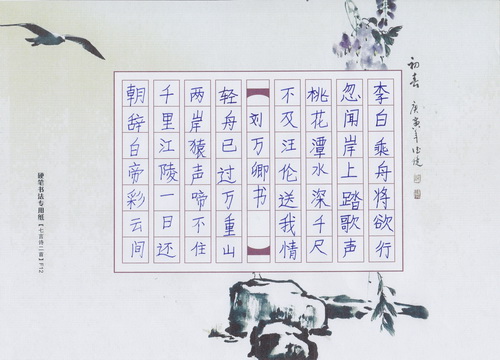 李白乘舟将欲行
忽闻岸上踏歌声
桃花潭水深千尺
不及汪伦送我情
刘万卿书
轻舟已过万重山
两岸猿声啼不住
千里江陵一日还
朝辞白帝彩云间
初春 庚寅年
硬笔书法专用纸【七言诗二首】P12